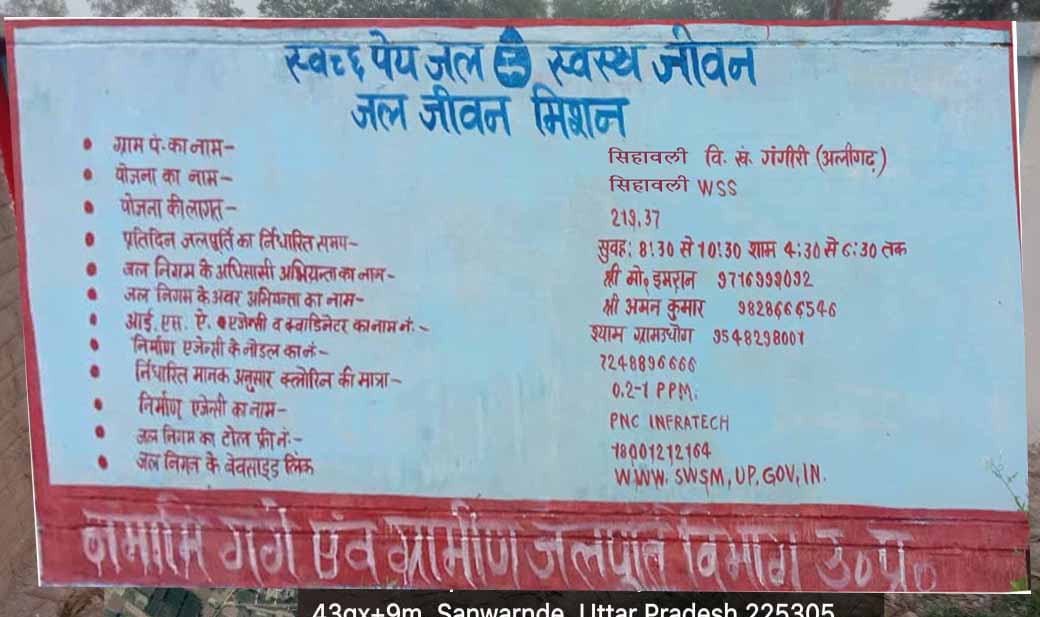 स्वच्छ पेय जल स्वस्थ जीवन
जल जीवन मिशन
ग्राम पं. का नाम- सिहावली वि. खं. गंगीरी (अलीगढ़)
योजना का नाम- सिहावली WSS
योजना की लागत- 219.37
प्रतिदिन जलपूर्ति का निर्धारित समय- सुवह: 8:30 से 10:30 शाम 4:30 से 6:30 तक
जल निगम के अधिसासी अभियन्ता का नाम- श्री मो. इमरान 9716999092
जल निगम के अवर अभियन्ता का नाम- श्री अमन कुमार 9828666546
आई. एस. ऐ. एजेन्सी व क्वाडिनेटर का नाम नं. - श्याम ग्रामउधोग 9548298001
निर्माण एजेन्सी के नोडल का नं- 7248896666
र्निधारित मानक अनुसार क्लोरिन की मात्रा- 0.2-1 PPM.
निर्माण एजेन्सी का नाम- PNC INFRATECH
जल निगम का टोल फ्री नं.- 18001212164
जल निगम के बेवसाइड लिंक WWW. SWSM, UP. GOV, IN.
नमामि गंगे एंव ग्रामीण जलपूर्ति विभाग उ०प्र०
43gx+9m, Sanwarnde, Uttar Pradesh 225305